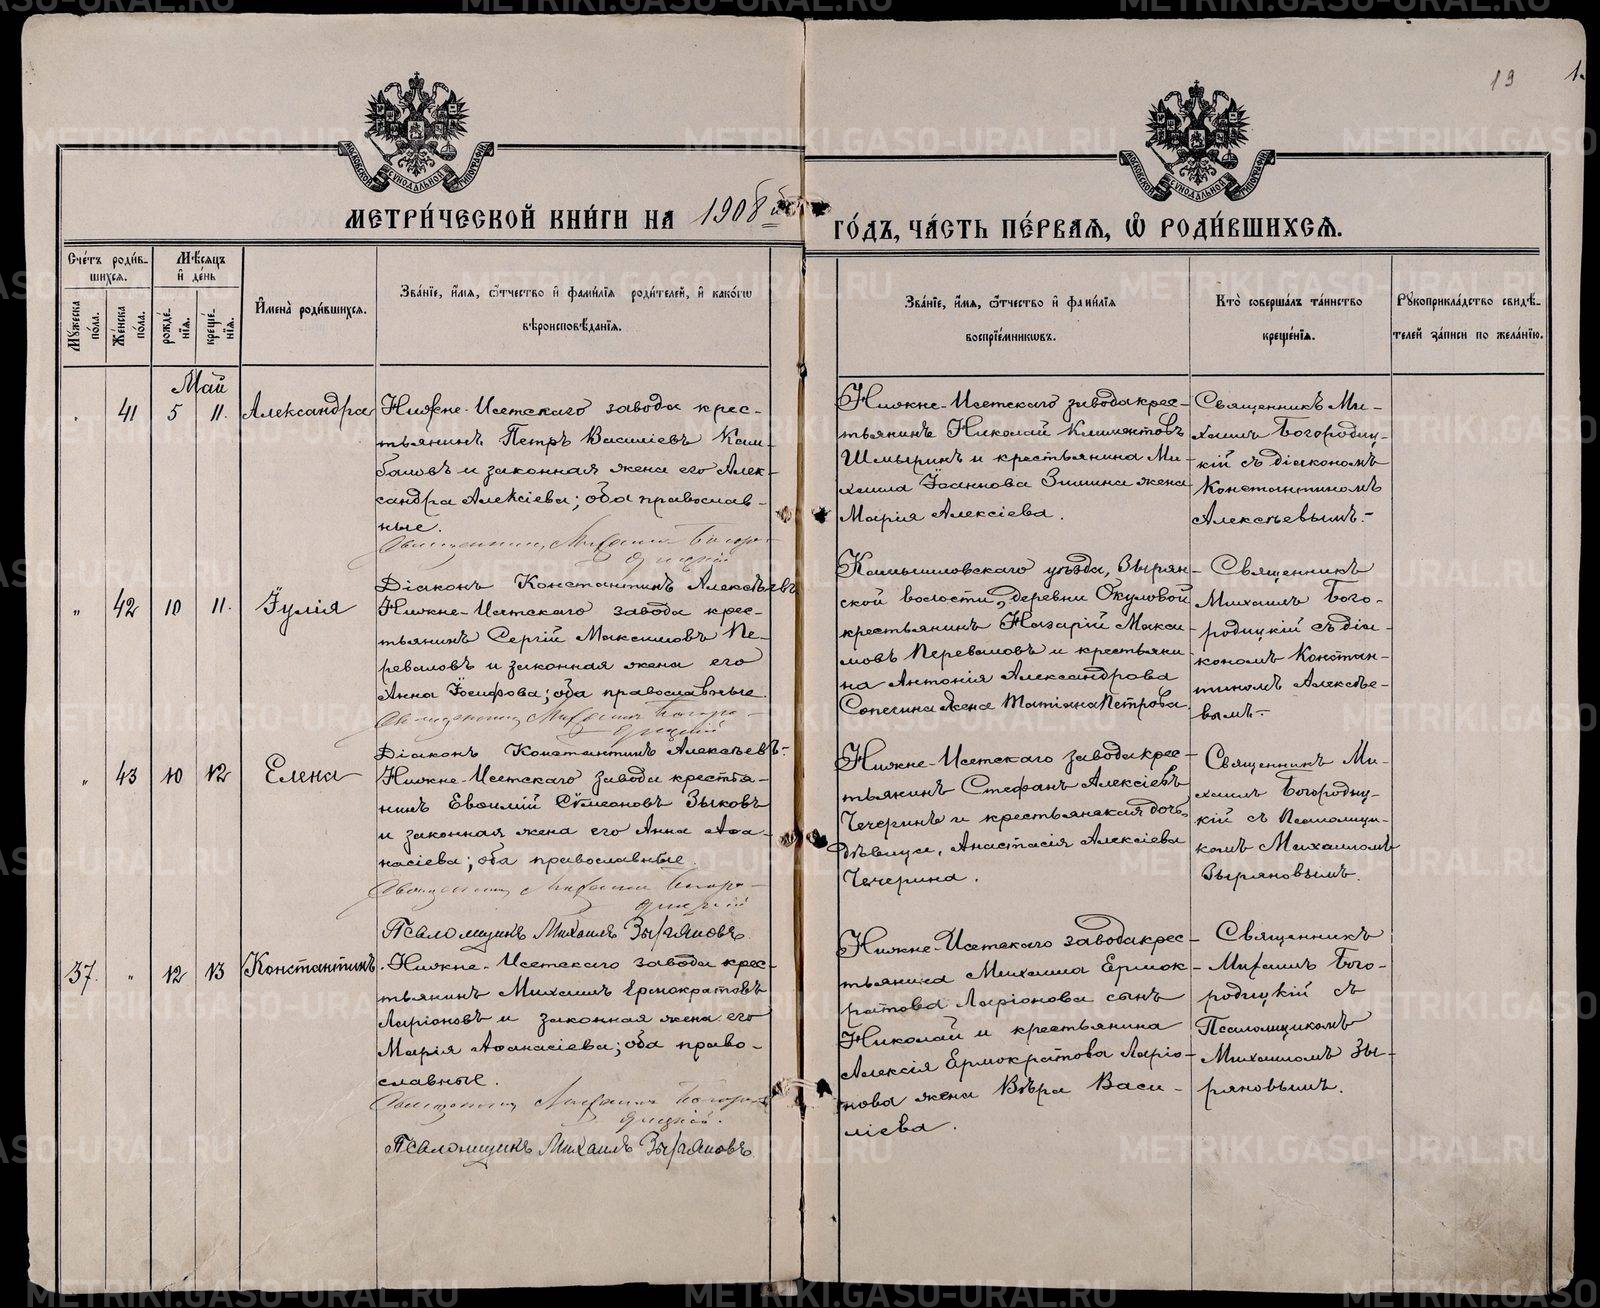 19
МЕТРИ́ЧЕСКОЙ КНИ́ГИ НА 1908 й
ГО́ДЪ, ЧА́СТЬ ПЕ́РВАЯ, Ѿ РОДИ́ВШИХСЯ.
Сче́тъ роди́вшихся.
Мꙋ́жеска по́ла.
Же́нска по́ла.
Мѣ́сяцъ и҆ де́нь
рожде́нїя.
креще́нїя.
И҆мена̀ роди́вшихся.
Зва́нїе, и҆́мя, ѻ҆́тчество и҆ фами́лїя роди́телей, и҆ како́гѡ
вѣроисповѣ́данїя.
Зва́нїе, и҆́мя, ѻ҆́тчество и҆ фами́лїя
воспрїе́мникѡвъ.
Кто̀ соверша́лъ та́инство
креще́нїя.
Рꙋкоприкла́дство свидѣ́-
телей за́писи по жела́нїю.
Май
41 5 11. Александра
Нижне-Исетскаго завода крес-
тьянинъ Петръ Василіевъ Кам-
баловъ и законная жена его Алек-
сандра Алексіева; оба православ-
ные.
Священникъ Михаилъ Богоро-
дицкій
Діаконъ Константинъ Алексѣевъ
Нижне-Исетскаго завода крес-
тьянинъ Николай Климентовъ
Шмыринъ и крестьянина Ми-
хаила Іоаннова Зимина жена
Марія Алексіева.
Священникъ Ми-
хаилъ Богородиц-
кій съ діакономъ
Константиномъ
Алексѣевымъ.-
„ 42 10 11. Іулія
Нижне-Исетскаго завода крес-
тьянинъ Сергій Максимовъ Пе-
реваловъ и законная жена его
Анна Іосифова; оба православные.
Священникъ Михаилъ Богоро-
дицкій
Діаконъ Константинъ Алексѣевъ.
Камышловскаго уѣзда, Зырян-
ской волости, деревни Окуловой
крестьянинъ Назарій Макси-
мовъ Переваловъ и крестьяни
на Антонія Александрова
Сопегина жена Татіана Петрова
Священникъ
Михаилъ Бого-
родицкій съ діа-
кономъ Констан-
тиномъ Алексѣе-
вымъ.-
„ 43 10 12 Елена
Нижне-Исетскаго завода крестья-
нинъ Евѳимій Сѵмеоновъ Зыковъ
и законная жена его Анна Аѳа-
насіева; оба православные.
Священникъ Михаилъ Богоро-
дицкій
Псаломщикъ Михаилъ Зыряновъ.
Нижне-Исетскаго завода крес-
тьянинъ Стефанъ Алексіевъ
Чечеринъ и крестьянская дочь,
дѣвица, Анастасія Алексіева
Чечерина.
Священникъ Ми-
хаилъ Богородиц-
кій съ Псаломщи-
комъ Михаиломъ
Зыряновымъ.
37. „ 12 13 Константинъ.
Нижне-Исетскаго завода крес-
тьянинъ Михаилъ Ермократовъ
Ларіоновъ и законная жена его
Марія Аѳанасіева; оба право-
славные.
Священникъ Михаилъ Богоро-
дицкій.
Псаломщикъ Михаилъ Зыряновъ.
Нижне-Исетскаго завода крес-
тьянина Михаила Ермок-
ратова Ларіонова сынъ
Николай и крестьянина
Алексія Ермократова Ларіо-
нова жена Вѣра Васи-
ліева.
Священникъ
Михаилъ Бого-
родицкій съ
Псаломщикомъ
Михаиломъ Зы-
ряновымъ.